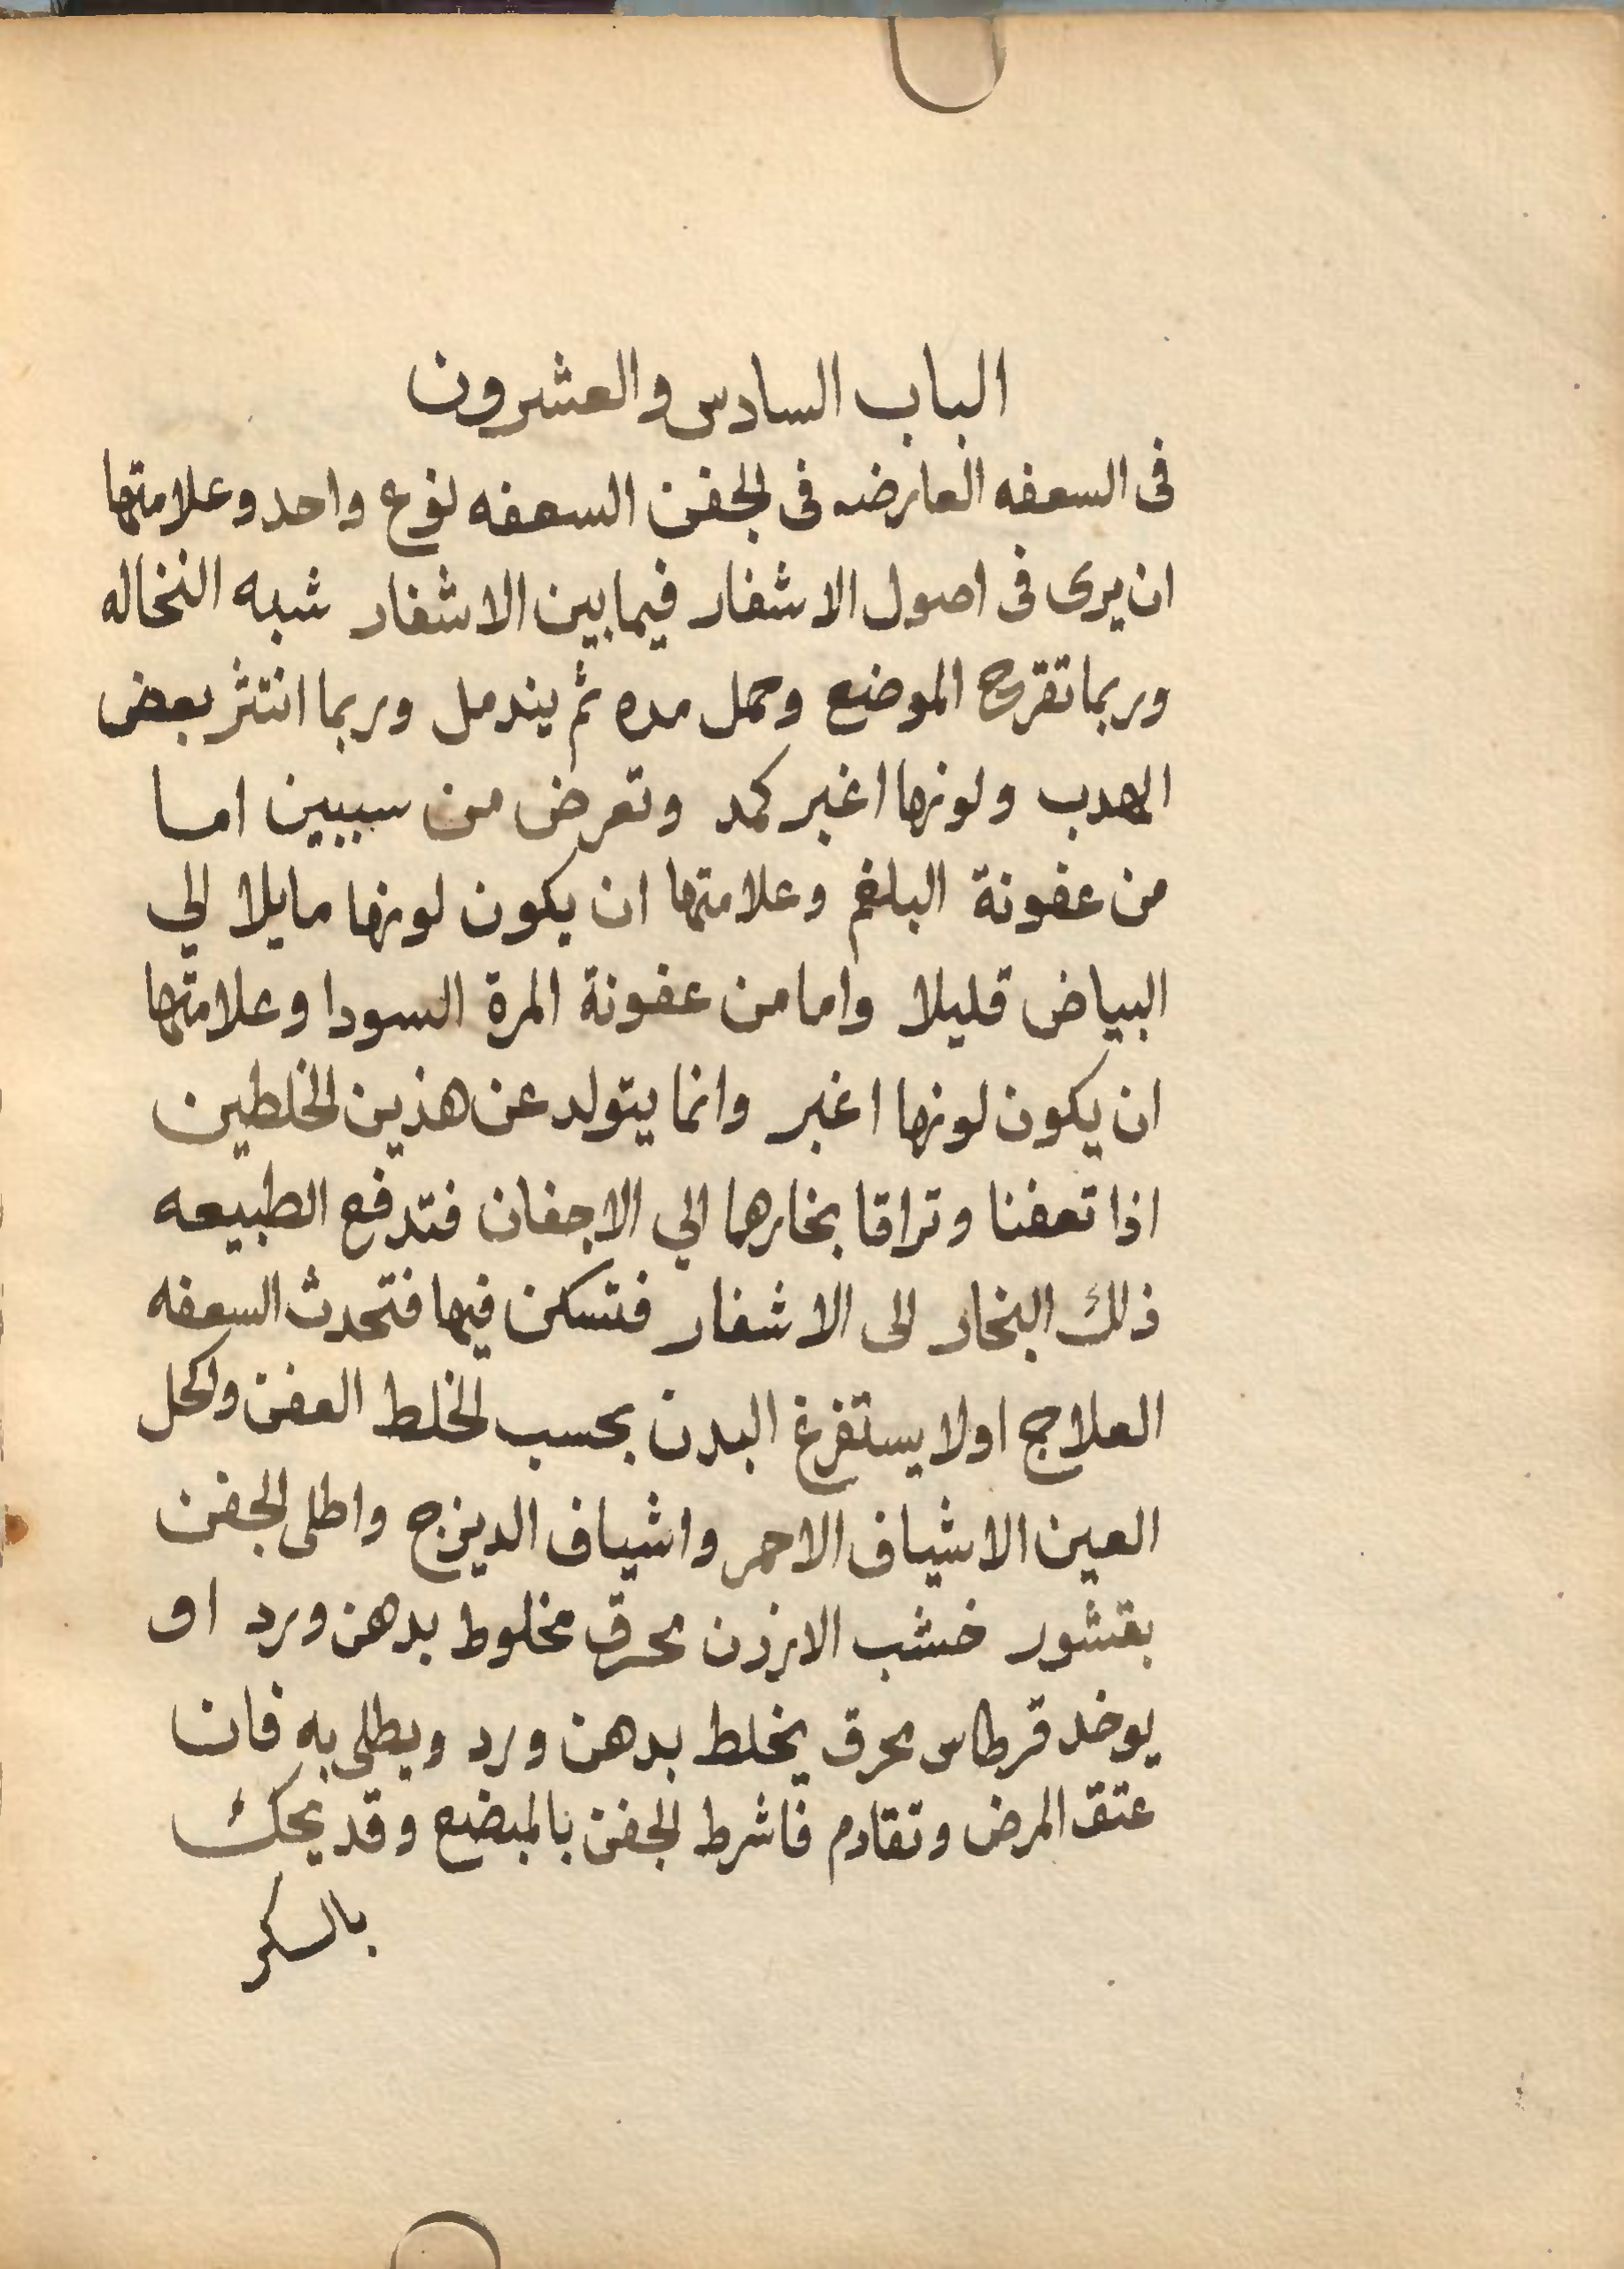 الباب السادس والعشرون
فى السعفه العارضه فى الجفن السعفه نوع واحد وعلامتها
ان يرى فى اصول الاشفار فيما بين الاشفار شبه النخاله
وربما تقرح الموضع وحمل مده ثم يندمل وربما انتثر بعض
الهدب ولونها اغبر كمد وتعرض من سببين اما
من عفونة البلغم وعلامتها ان يكون لونها مايلا الي
البياض قليلا واما من عفونة المرة السودا وعلامتها
ان يكون لونها اغبر وانما يتولد عن هذين الخلطين
اذا تعفنا وتراقا بخارهما الي الاجفان فتدفع الطبيعه
ذلك البخار الى الاشفار فتسكن فيها فتحدث السعفه
العلاج اولا يستفرغ البدن بحسب الخلط العفن واكحل
العين الاشياف الاحمر واشياف الديزج واطلى الجفن
بقشور خشب الارزن محرق مخلوط بدهن ورد او
يوخد قرطاس محرق يخلط بدهن ورد ويطلى به فان
عتق المرض وتقادم فاشرط الجفن بالمبضع وقد يحك
بالسكر